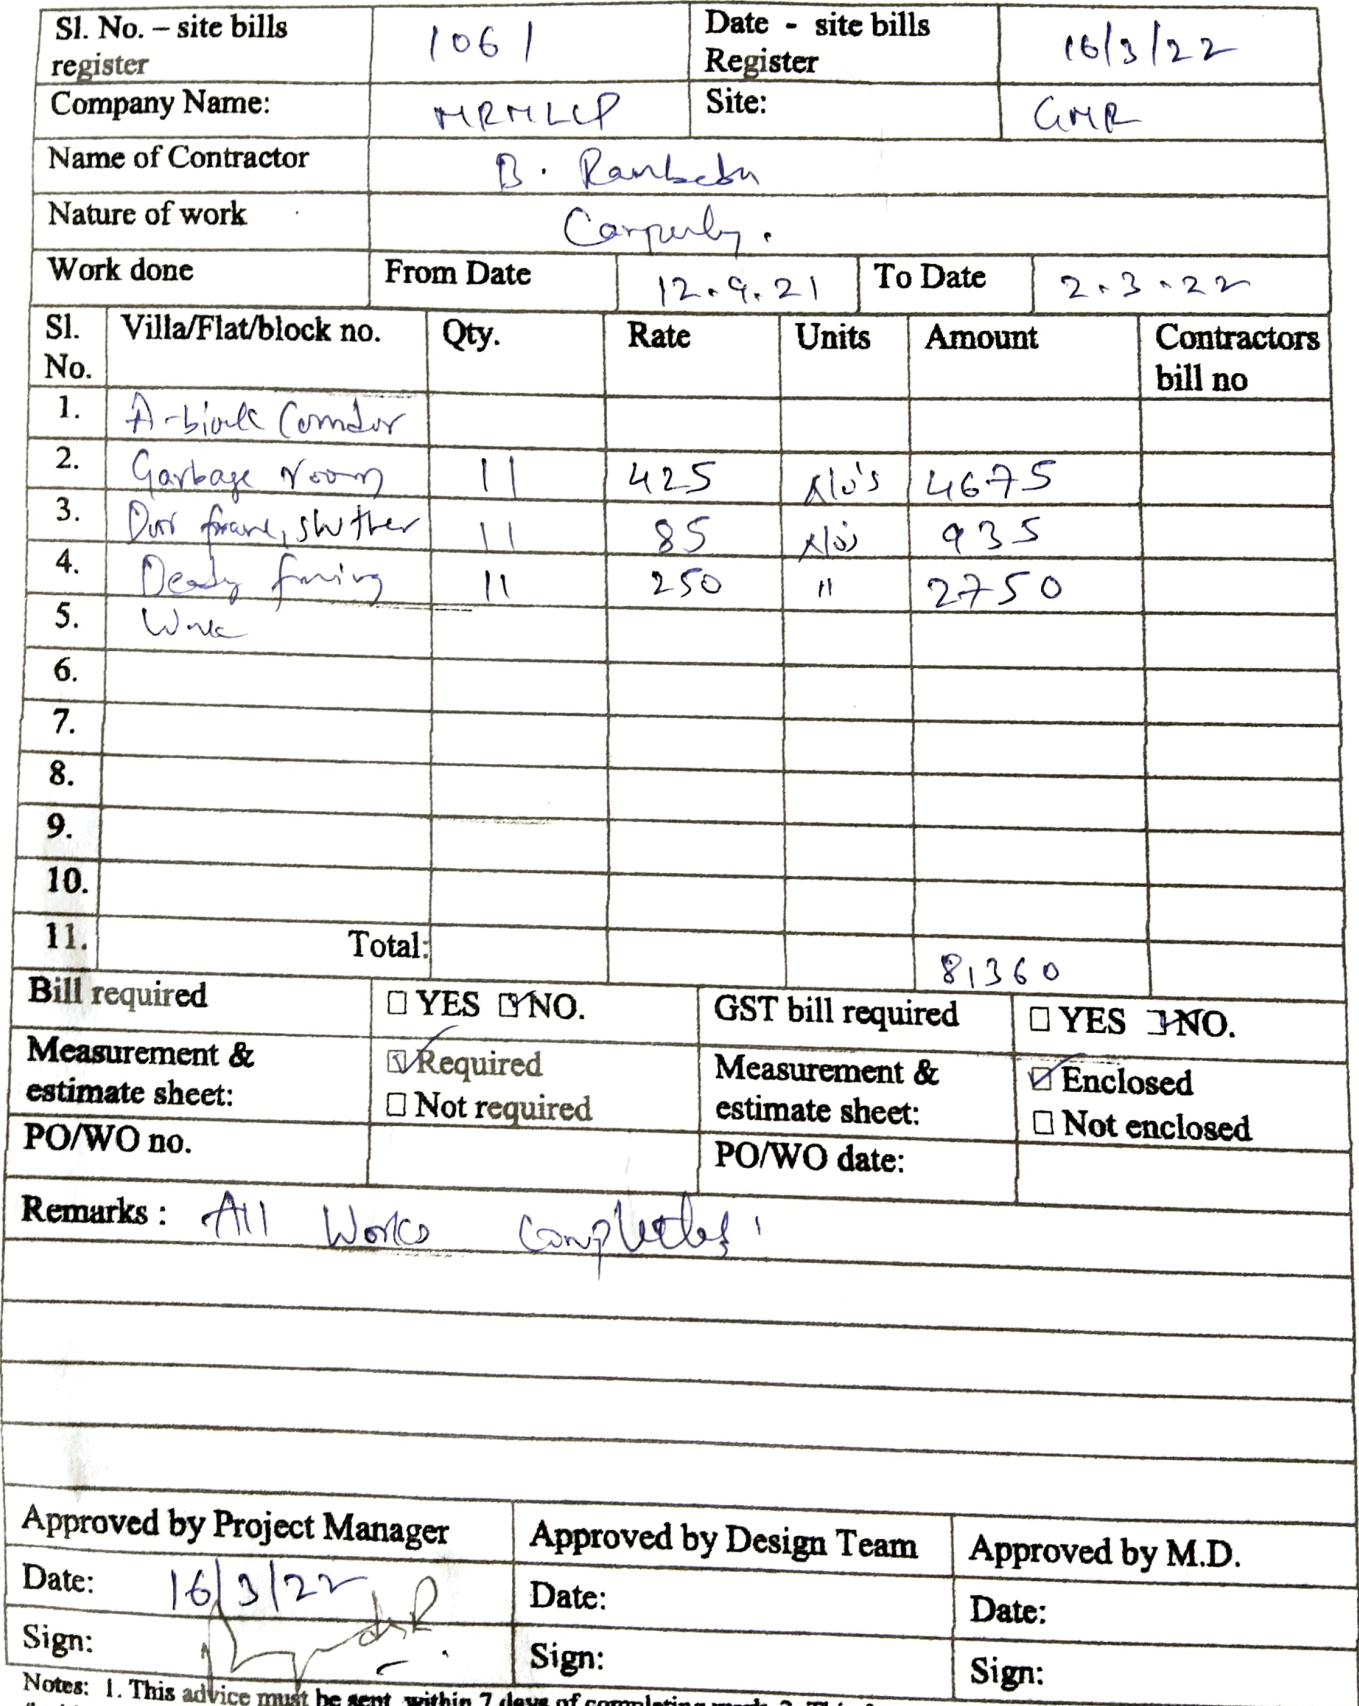 Sl. No. – site bills register 1061 Date - site bills Register 16/3/22
Company Name: MRMLLP Site: GMR
Name of Contractor B. Rambabu
Nature of work Carpentry.
Work done From Date 12.9.21 To Date 2.3.22
Sl. No. Villa/Flat/block no. Qty. Rate Units Amount Contractors bill no
1. A-block Corridor
2. Garbage room 11 425 No's 4675
3. Door frame, shutter 11 85 No's 935
4. 11 250 " 2750
5. Work
6.
7.
8.
9.
10.
11. Total: 8,360
Bill required ☐ YES ☑ NO. GST bill required ☐ YES ☑ NO.
Measurement & estimate sheet: ☑ Required ☐ Not required Measurement & estimate sheet: ☑ Enclosed ☐ Not enclosed
PO/WO no. PO/WO date:
Remarks : All Works Completed
Approved by Project Manager Approved by Design Team Approved by M.D.
Date: 16/3/22 Date: Date:
Sign: Sign: Sign:
Notes: 1. This advice must be sent within 7 days of completing work. 2. This